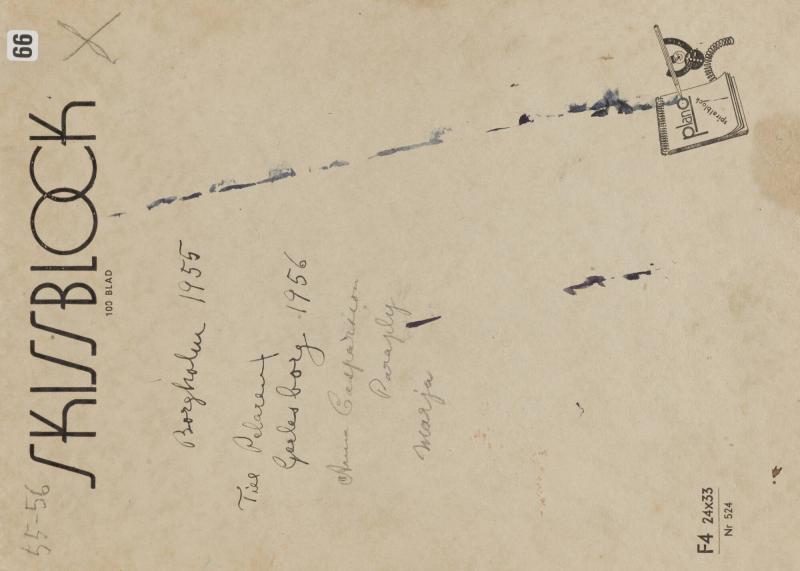 66
55-56
SKISSBLOCK
100 BLAD
Borgholm 1955
Till Pelaren
Gerlesborg 1956
Anna Casparsson
Paraply
Marja
plano
spiralblock
F4 24x33
Nr 524